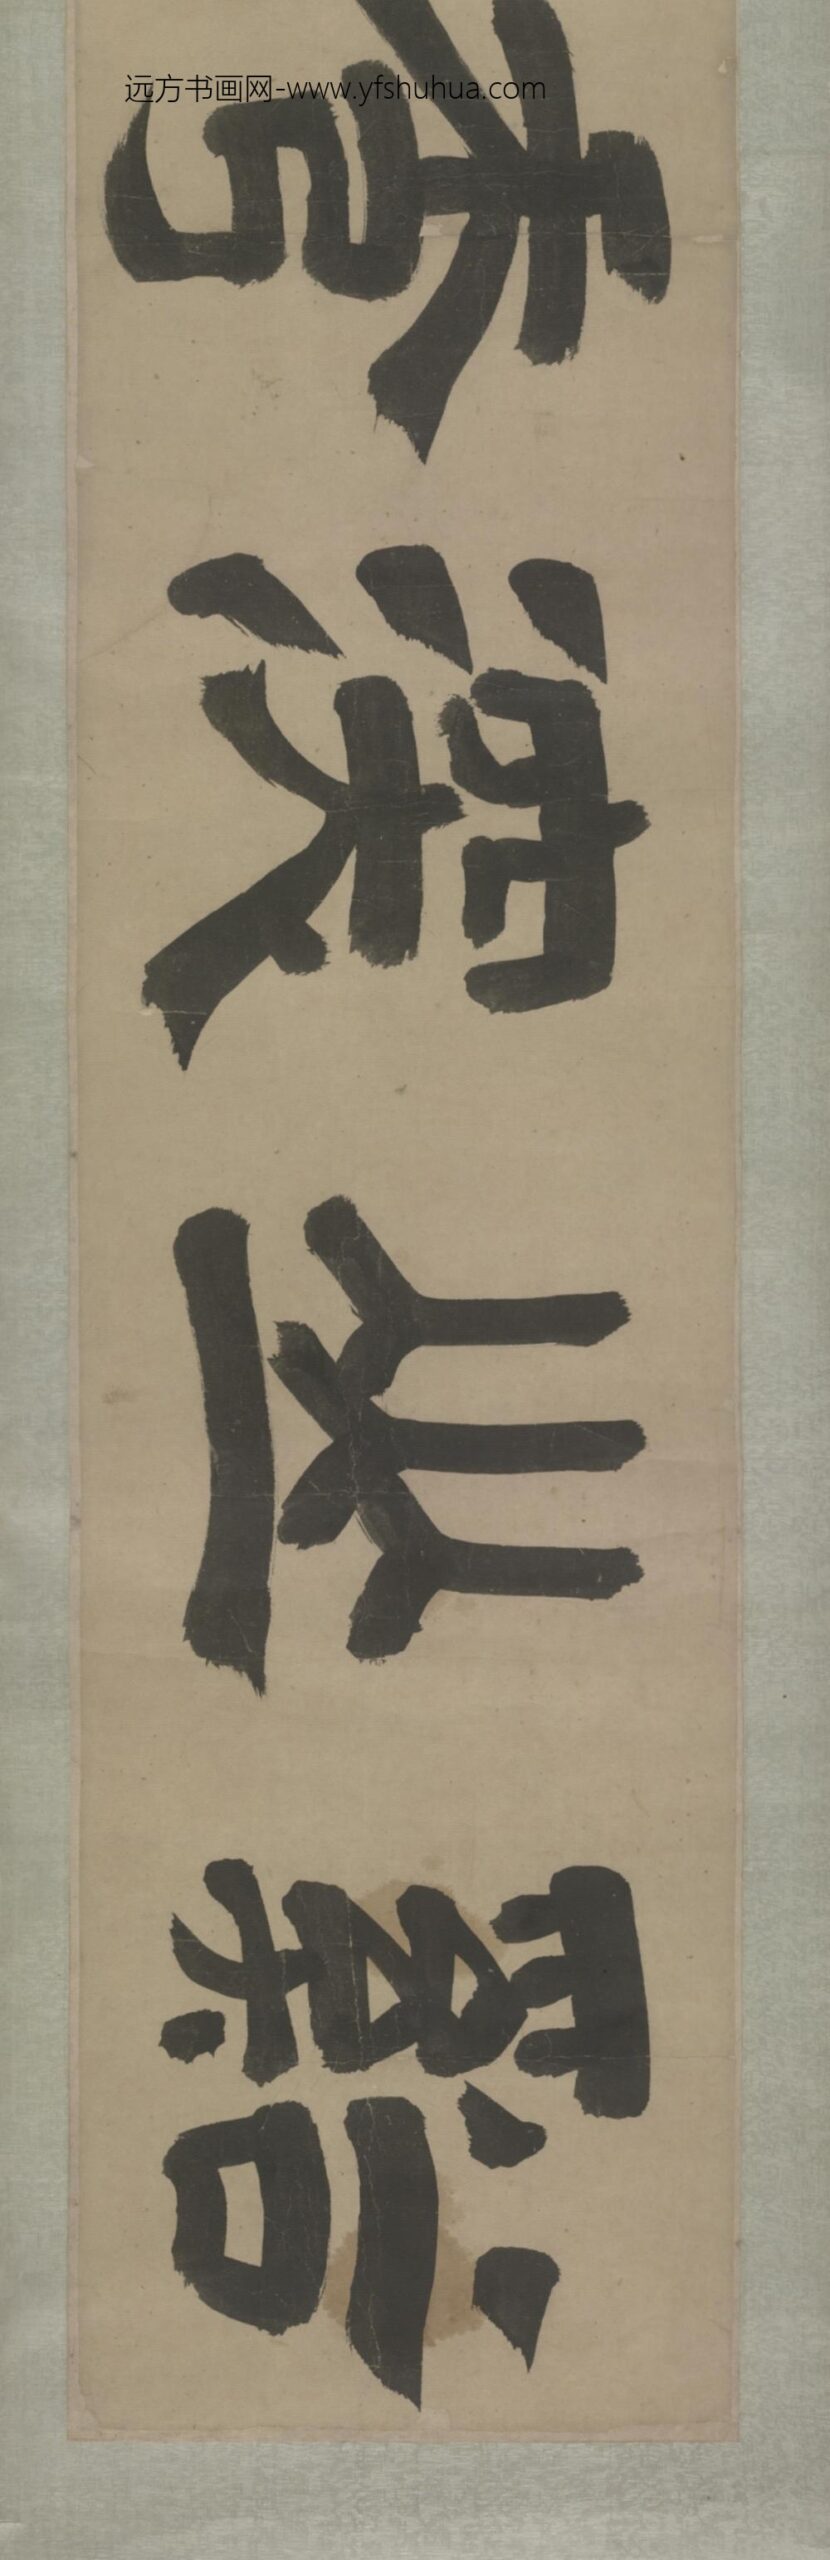 远方书画网-www.yfshuhua.com
谿山深秀